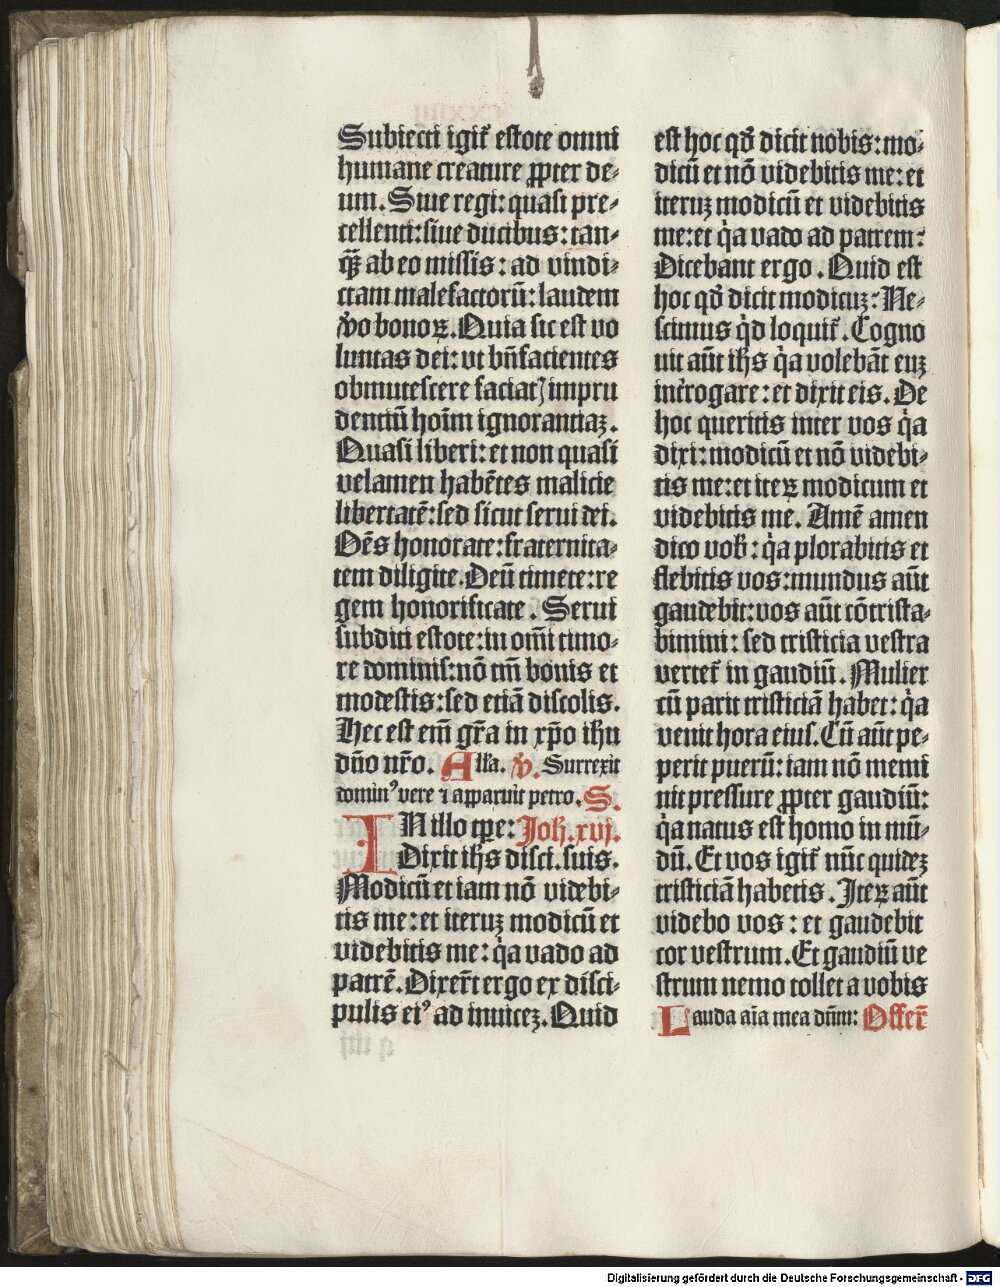 Subiecti igit᷑ estote omni
humane creature ꝓpter de-
um. Siue regi: quasi pre-
cellenti: siue ducibus: tan-
qꝫ̃ ab eo missis: ad vindi-
ctam malefactorū: laudem
v̾o bonoꝝ. Quia sic est vo
luntas dei: vt bn̄facientes
obmutescere faciat; impru
dentiū hoīm ignorantiaꝫ.
Quasi liberi: et non quasi
velamen habētes malicie
libertatē: sed sicut serui dei.
Oēs honorate: fraternita-
tem diligite. Deū timete: re
gem honorificate. Serui
subditi estote: in om̄i timo-
re dominis: nō tm̄ bonis et
modestis: sed etiā discolis.
Hec est em̄ gr̄a in xp̄o ih̄u
dn̄o nr̄o. Alľa. ꝟ. Surrexit
domin⁹ vere ⁊ apparuit petro. S.
IN illo tꝑe: Joħ. xvj.
Dixit ih̄s disci. suis.
Modicū et iam nō videbi-
tis me: et iteruꝫ modicū et
videbitis me: q̇a vado ad
patrē. Dixer̄t ergo ex disci-
pulis ei⁹ ad inuiceꝫ. Quid
est hoc qđ dicit nobis: mo-
dicū et nō videbitis me: et
iteruꝫ modicū et videbitis
me: et q̇a vado ad patrem:
Dicebant ergo. Quid est
hoc qđ dicit modicuꝫ: Ne-
scimus q̇d loquit᷑. Cogno
uit aūt ih̄s q̇a volebāt euꝫ
int̾rogare: et dixit eis. De
hoc queritis inter vos q̇a
dixi: modicū et nō videbi-
tis me: et iteꝝ modicum et
videbitis me. Amē amen
dico vob̄: q̇a plorabitis et
flebitis vos: mundus aūt
gaudebit: vos aūt cōtrista-
bimini: sed tristicia vestra
vertet᷑ in gaudiū. Mulier
cū parit tristiciā habet: q̇a
venit hora eius. Cū aūt pe-
perit puerū: iam nō memi
nit pressure ꝓpter gaudiū:
q̇a natus est homo in mū-
dū. Et vos igit᷑ nūc quideꝫ
tristiciā habetis. Iteꝝ aūt
videbo vos: et gaudebit
cor vestrum. Et gaudiū ve
strum nemo tollet a vobis
Lauda aīa mea dn̄m: Offer̄
Digitalisierung gefördert durch die Deutsche Forschungsgemeinschaft - DFG